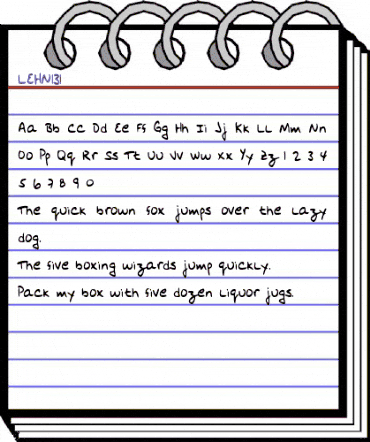 LEHN131
Aa Bb Cc Dd Ee Ff Gg Hh Ii Jj Kk Ll Mm Nn
Oo Pp Qq Rr Ss Tt Uu Vv Ww Xx Yy Zz 1 2 3 4
5 6 7 8 9 0
The quick brown fox jumps over the lazy
dog.
The five boxing wizards jump quickly.
Pack my box with five dozen liquor jugs.